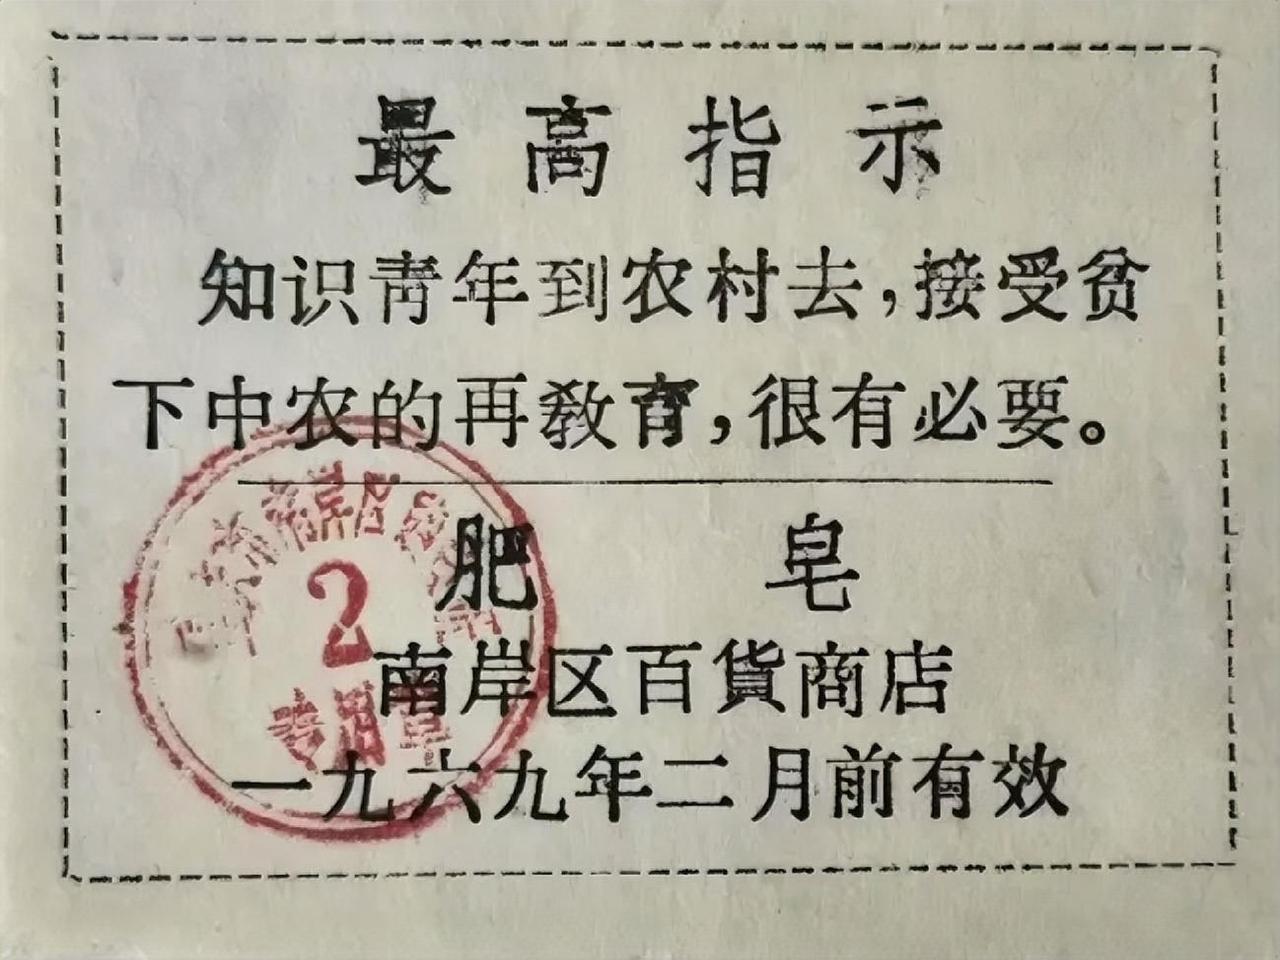 最高指示
知识青年到农村去，接受贫
下中农的再敎育，很有必要。
肥皂
南岸区百貨商店
一九六九年二月前有效
市南岸区
2
专用章